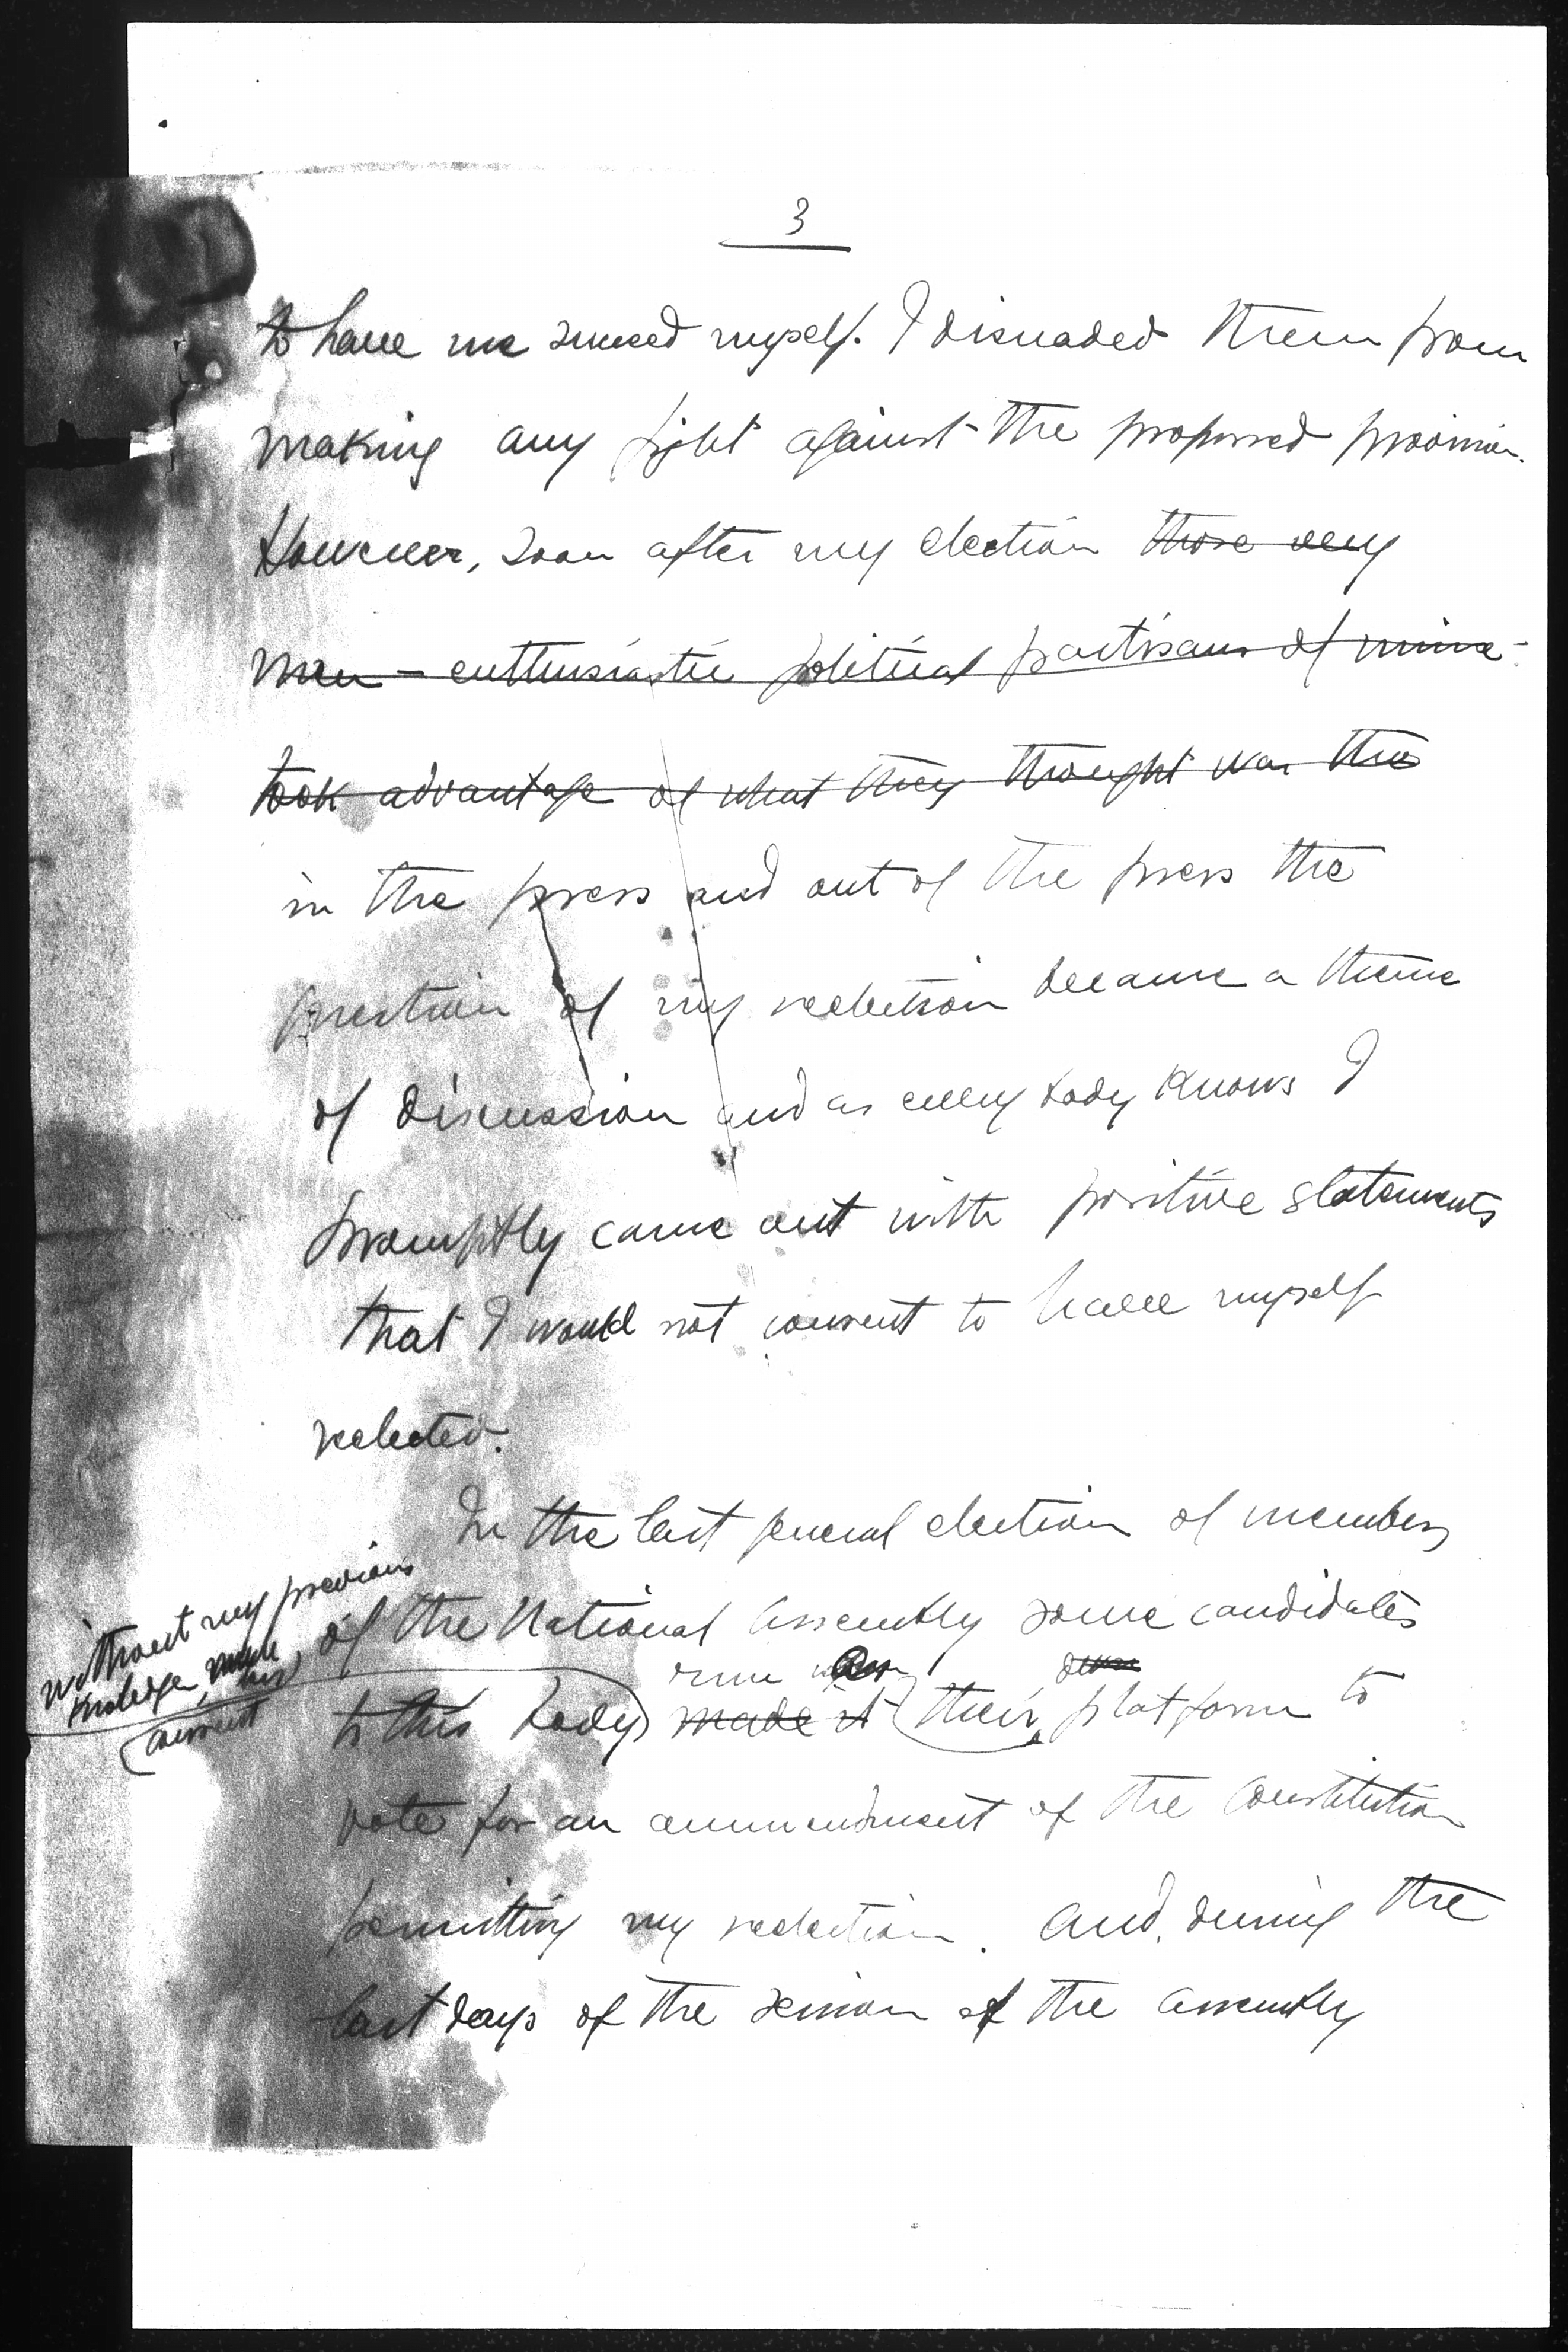 3
to have me succeed myself. I disuaded them from
making any fight against the proposed provision.
However, soon after my election those very
men - enthusiastic political partisans of mine -
took advantage of what they thought was the
in the press and out of the press the
question of my reelection became a theme
of discussion and as every body knows I
promptly came out with positive statements
that I would not consent to have myself
reelected.
In the last general election of members
without my previous
knoledge
consent
of the National Assembly some candidates
run
to this body) made it their platform to
vote for an ammendment of the Constitution
permitting my reelection. And, during the
last days of the session of the Assembly